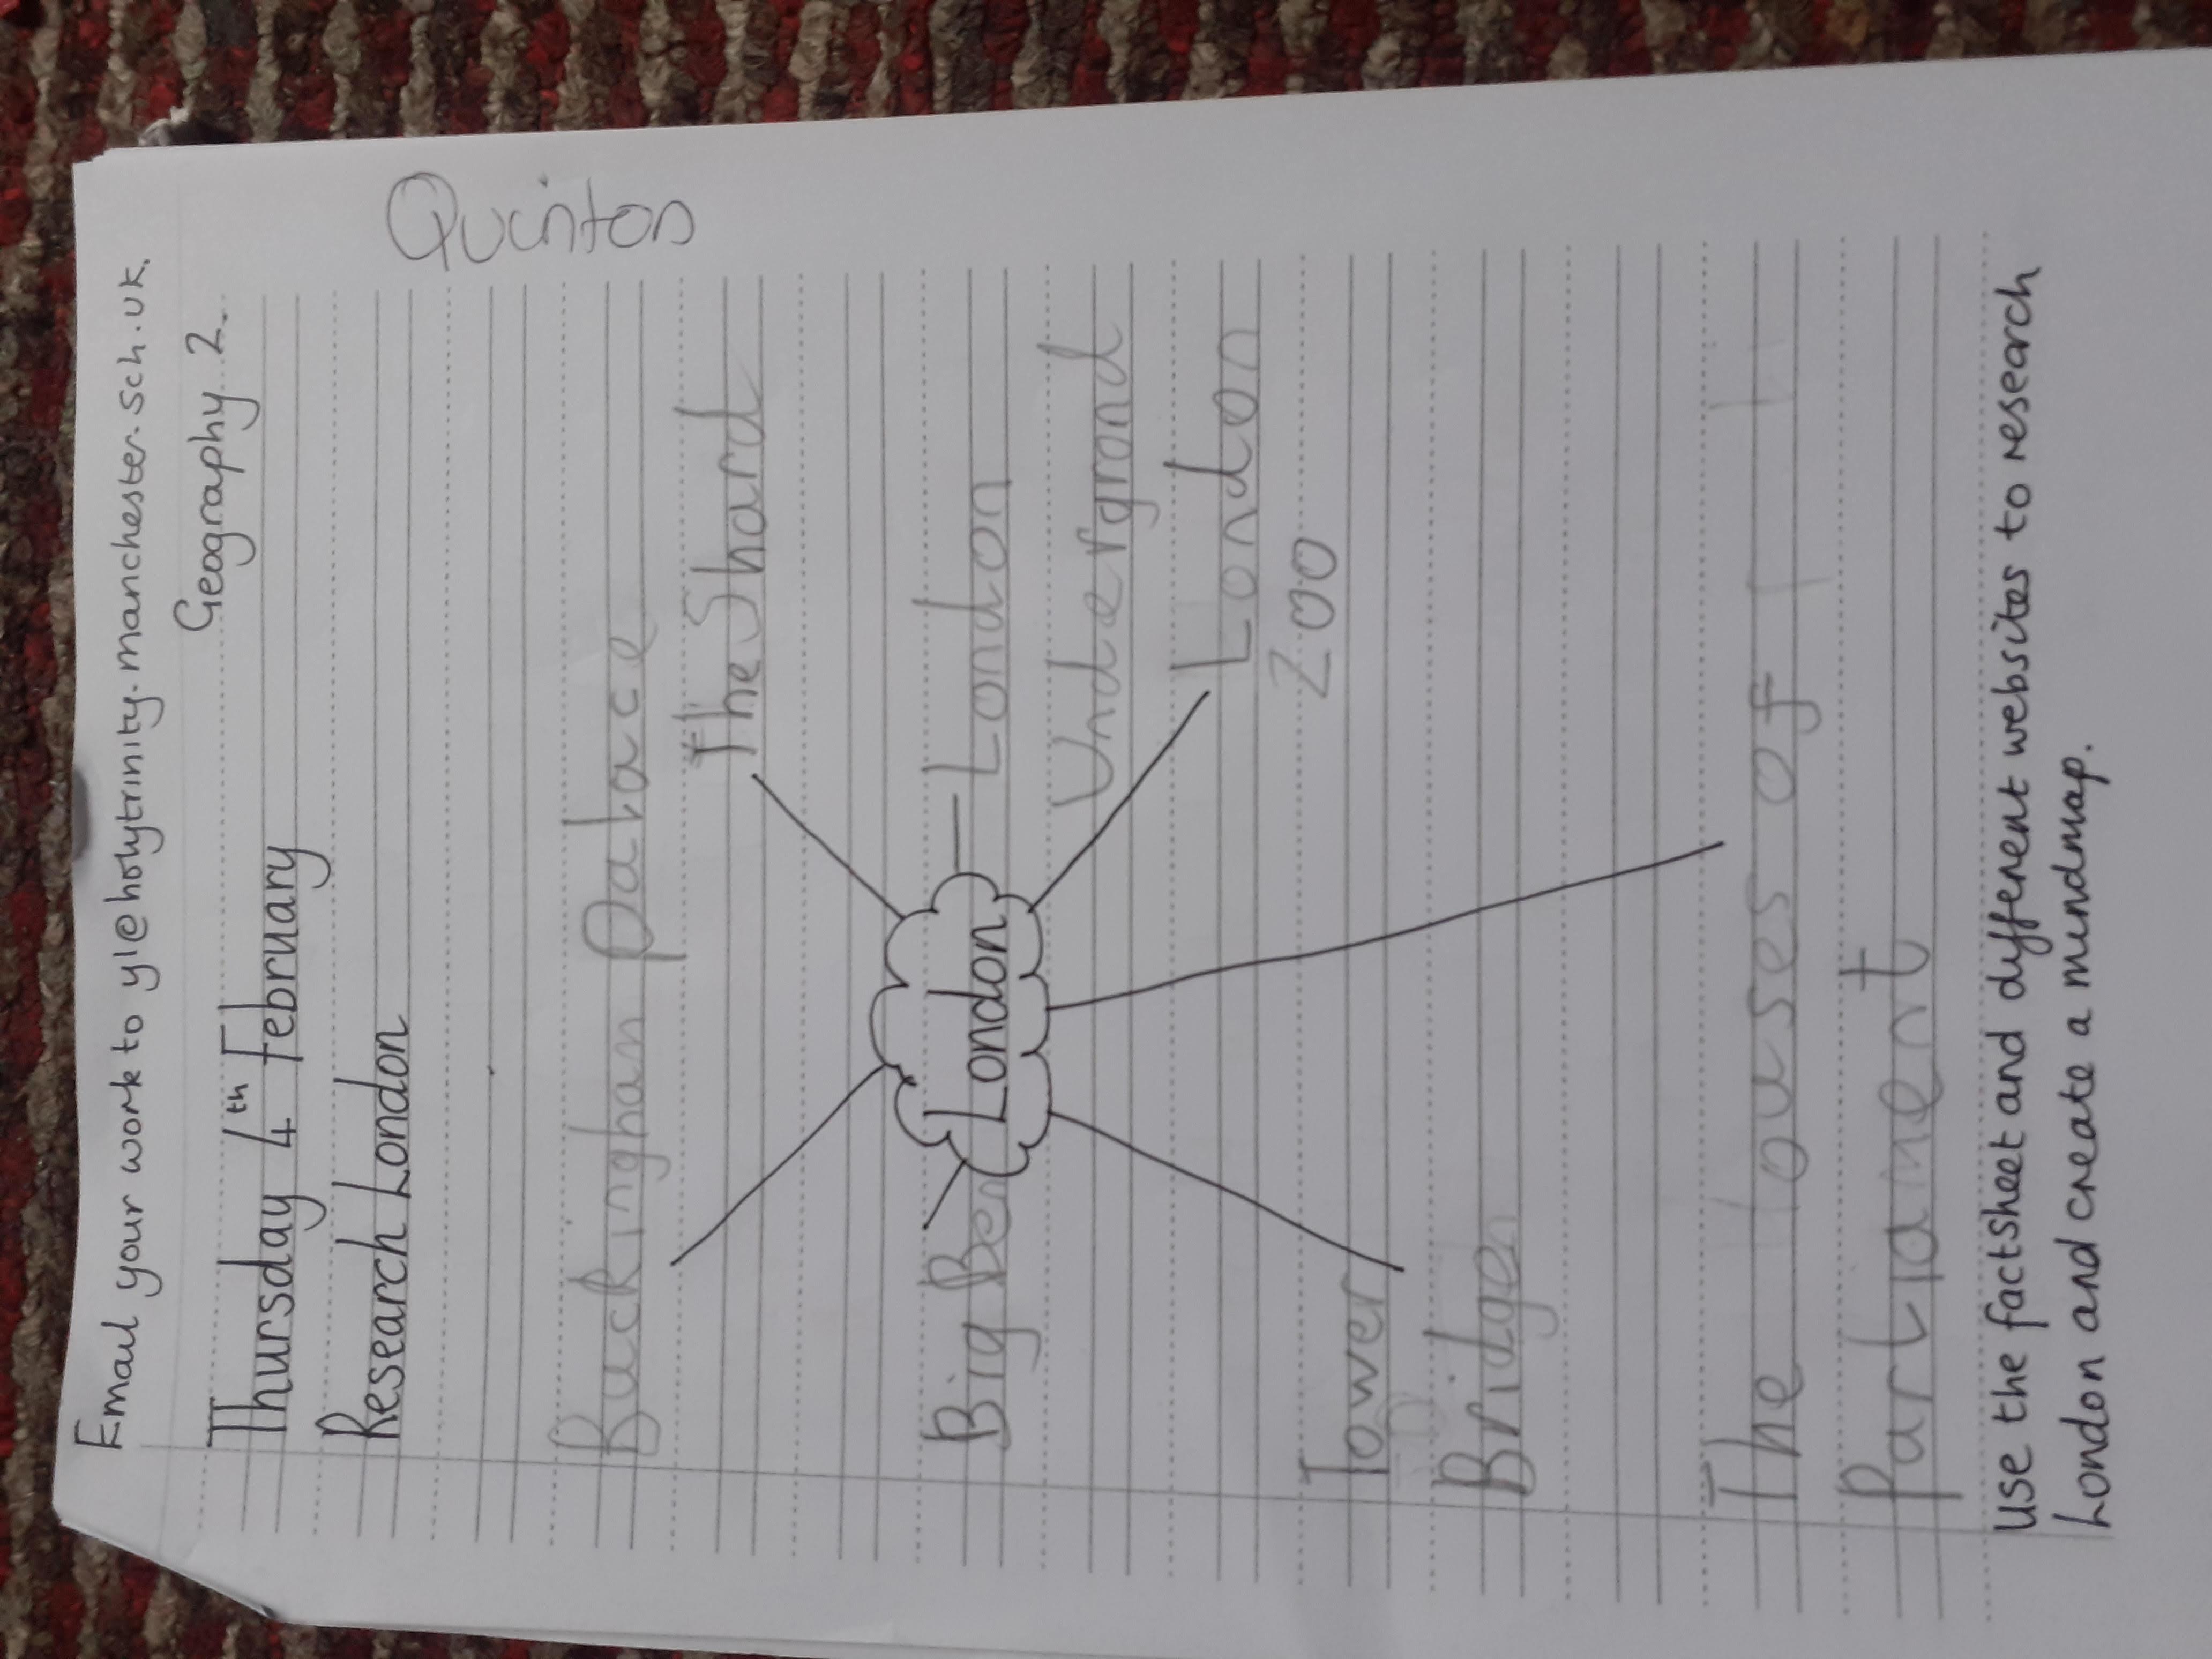 Email your work to yl@holytrinity.manchester.sch.uk.
Geography 2
Thursday 4th February
Research London
Quinton
Buckinghan palace
The Shard
Big Ben
London
London
Undergrond
London
Zoo
Tower
Bridge
The ouses of
Partiament
Use the factsheet and different websites to research
London and create a mindmap.